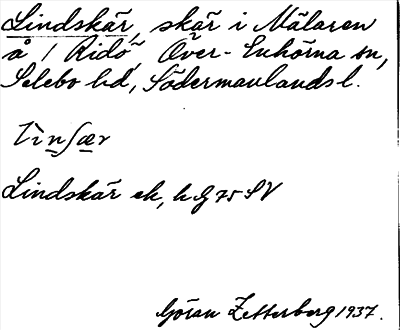 Lindskär, skär i Mälaren
å / Ridö, Över-Enhörna sn,
Selebo hd, Södermanlands l.
Lindskär ek, h G 75 SV
Göran Zetterberg 1937.